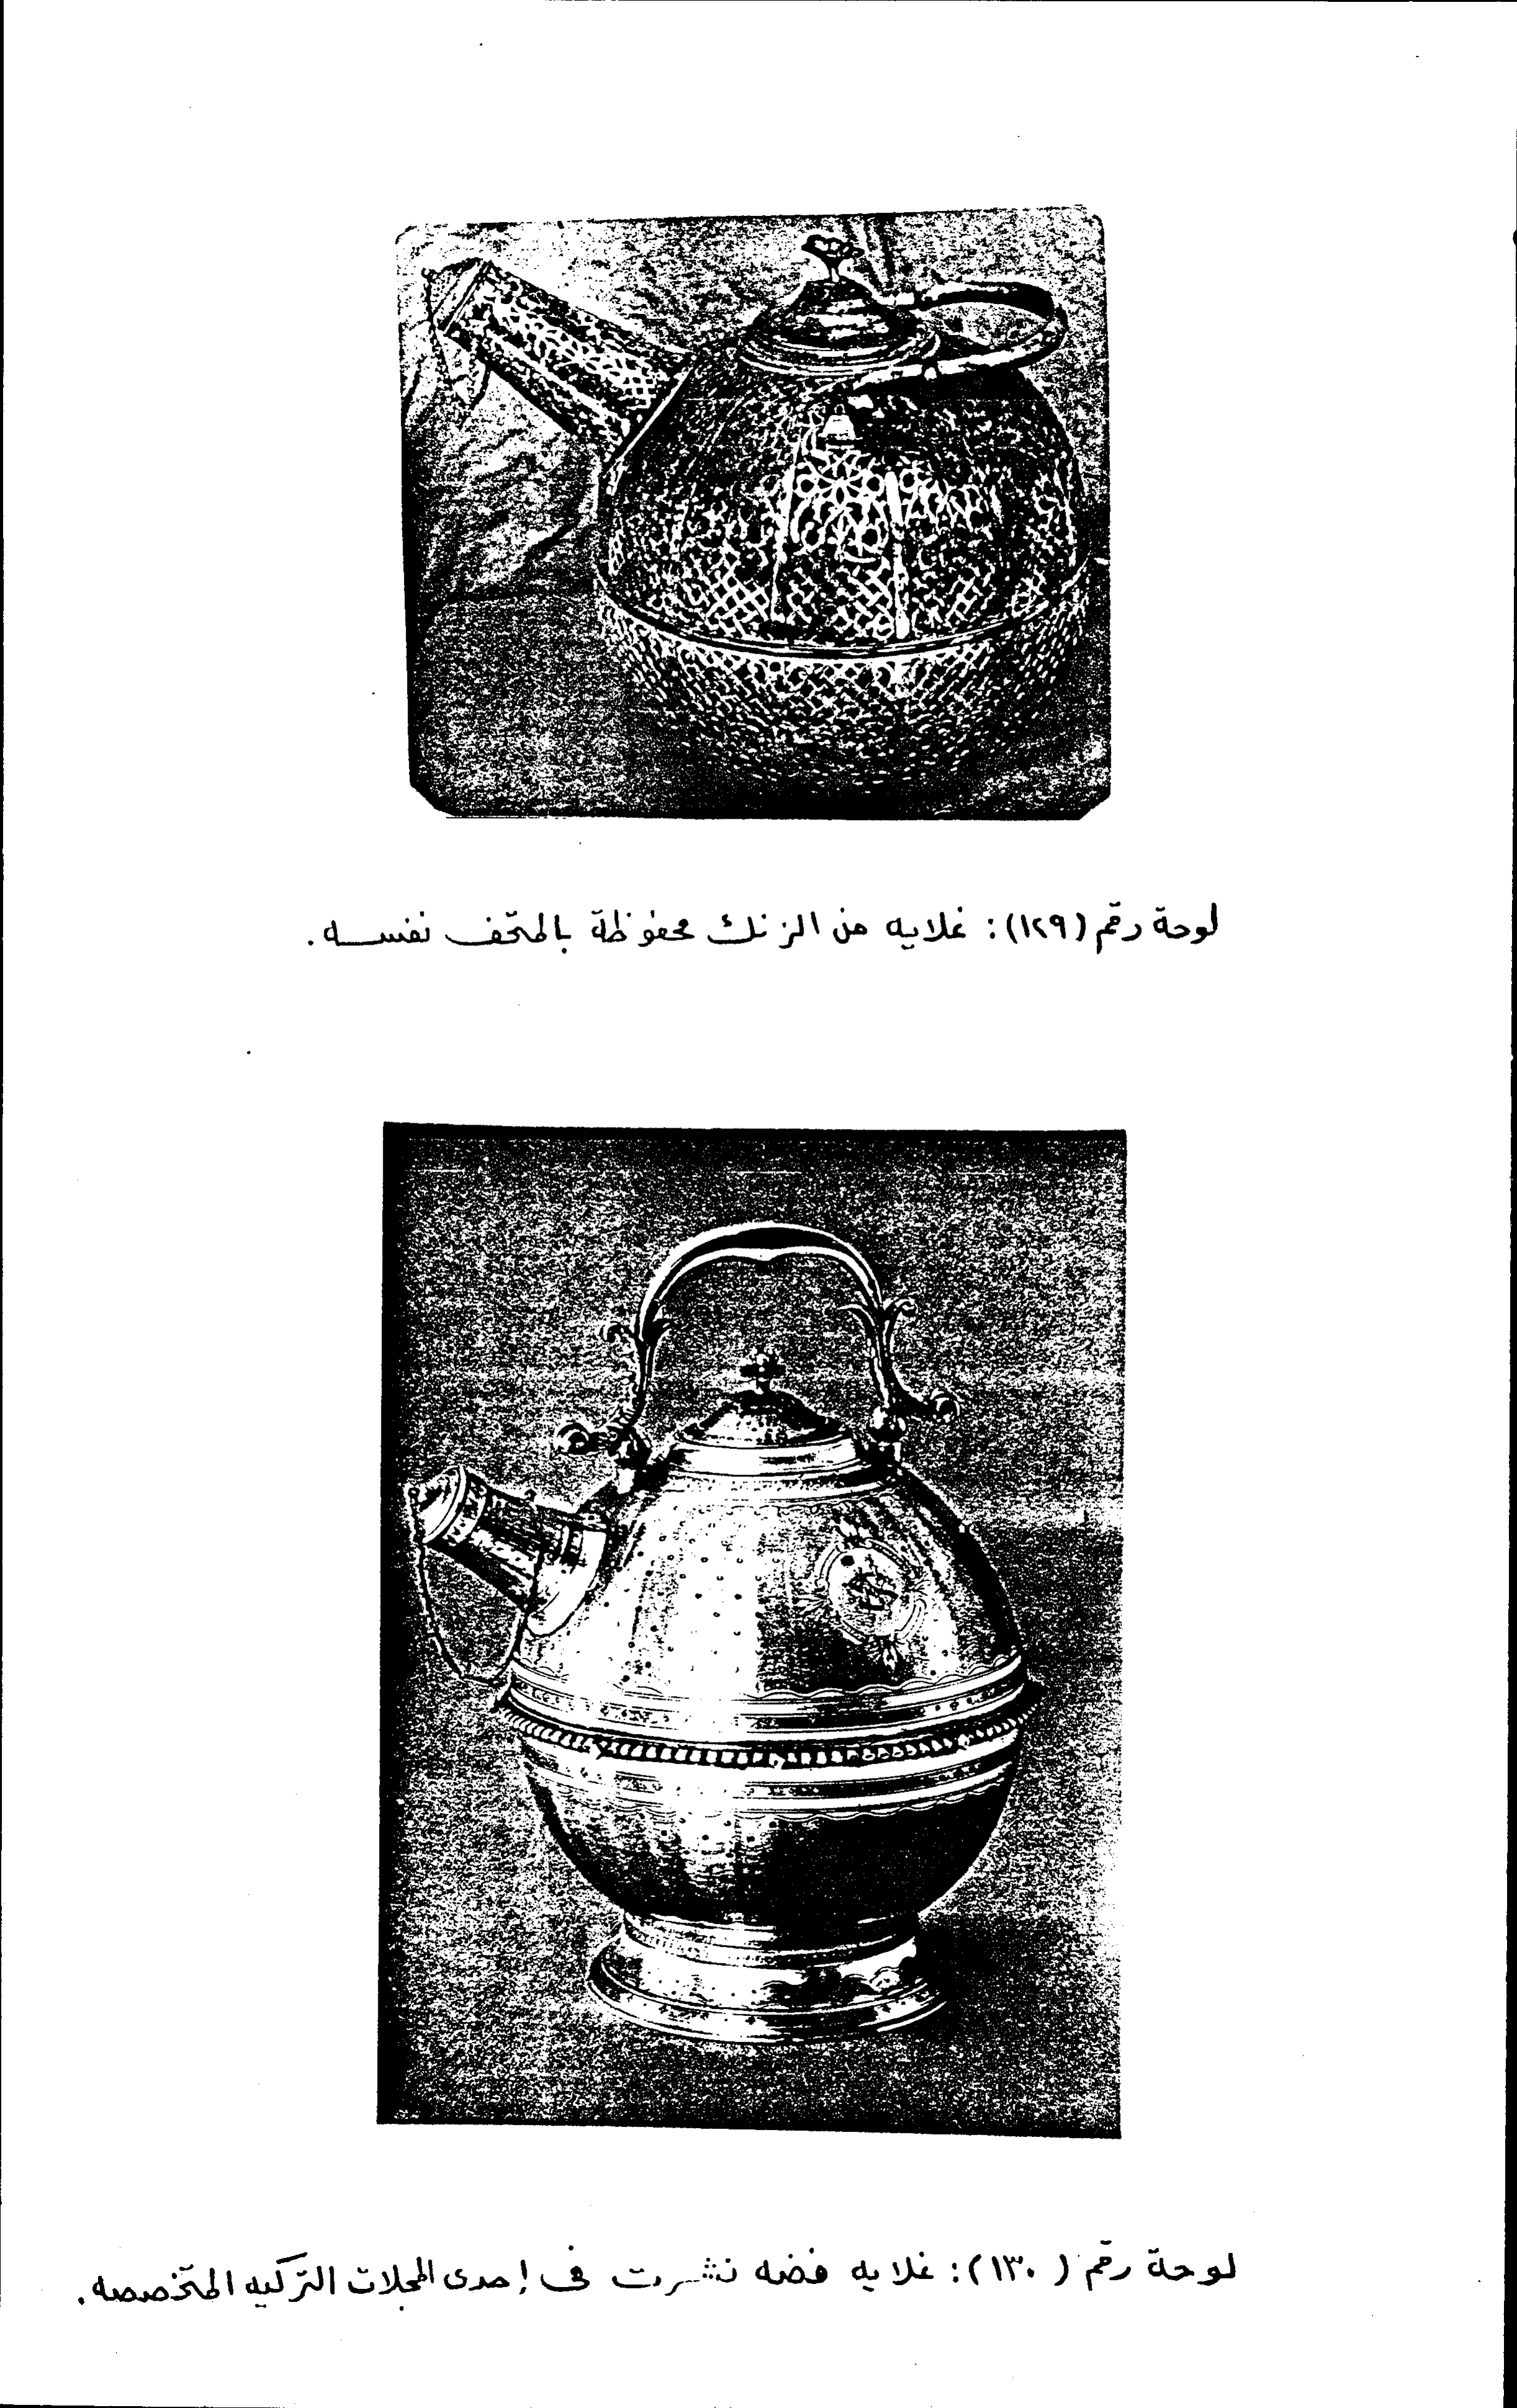 لوحة رقم (١٢٩): غلايه من الزنك محفوظة بالمتحف نفسه.
لوحة رقم (١٣٠): غلايه فضه نشرت فى إحدى المجلات التركيه المتخصصه.